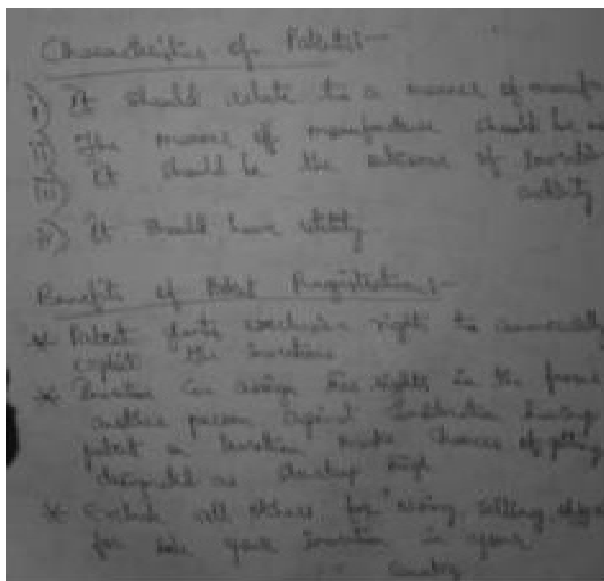 Characteristics of Patents:-
i) It should relate to a manner of
ii) The manner of manufacture should be
iii) It should be the outcome of
activity
iv) It should have utility
Benefits of Patent Registration:-
* Patent exclusive right to commercially
exploit the invention
* Invention can assign the rights in the
another person against having
patent an invention make chances of getting
as startup high
* Exclude all others for using, selling,
for sale your invention in your
country